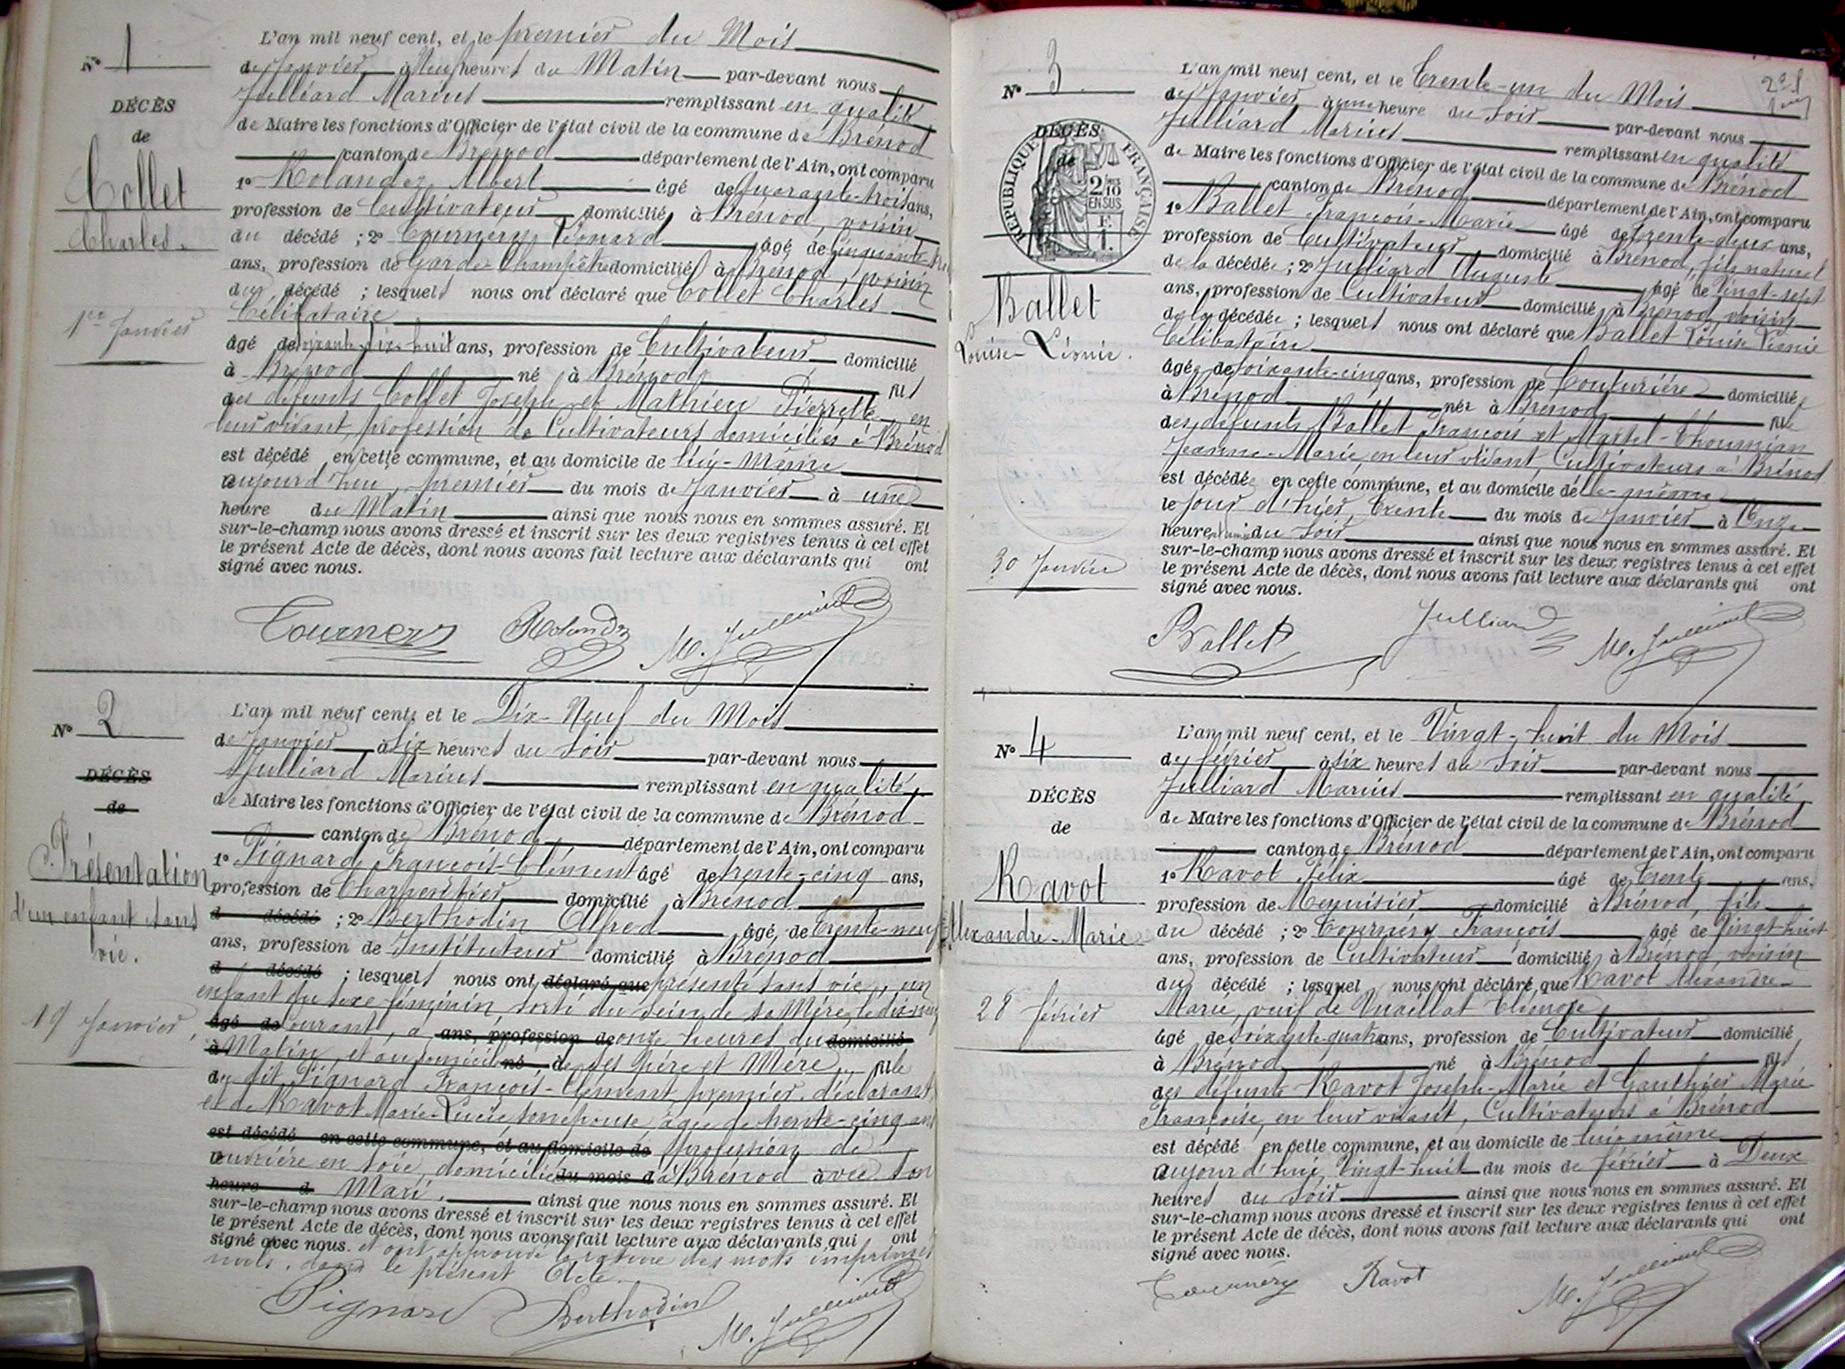 N° 1
DÉCÈS
de
Collet
Charles.
1er Janvier
L'an mil neuf cent, et le premier du Mois
de Janvier à Neuf heures du Matin par-devant nous
Julliard Marius remplissant en qualité
de Maire les fonctions d'Officier de l'état civil de la commune de Brénod
canton de Brénod département de l'Ain, ont comparu
1° Rolandez Albert âgé de quarante-trois ans,
profession de Cultivateur domicilié à Brénod, voisin
du décédé ; 2° Tournery Léonard âgé de cinquante
ans, profession de Garde-Champêtre domicilié à Brénod, voisin
du décédé ; lesquels nous ont déclaré que Collet Charles
Célibataire
âgé de soixante-dix-huit ans, profession de Cultivateur domicilié
à Brénod né à Brénod fils
des défunts Collet Joseph et Mathieu Pierrette en
leur vivant, profession de Cultivateurs domiciliés à Brénod
est décédé en cette commune, et au domicile de lui-Même
aujourd'hui, premier du mois de Janvier à une
heure du Matin ainsi que nous nous en sommes assuré. Et
sur-le-champ nous avons dressé et inscrit sur les deux registres tenus à cet effet
le présent Acte de décès, dont nous avons fait lecture aux déclarants qui ont
signé avec nous.
Tournery Rolandz M. Julliard
N° 2
DÉCÈS
de
Présentation
d'un enfant sans
vie.
19 Janvier
L'an mil neuf cent, et le Dix-Neuf du Mois
de Janvier à six heures du Soir par-devant nous
Julliard Marius remplissant en qualité
de Maire les fonctions d'Officier de l'état civil de la commune de Brénod
canton de Brénod département de l'Ain, ont comparu
1° Pignard François-Clément âgé de trente-cinq ans,
profession de Charpentier domicilié à Brénod
d décédé ; 2° Berthodin Alfred âgé de trente-neuf
ans, profession de Instituteur domicilié à Brénod
d décédé ; lesquels nous ont déclaré que présenté sans vie, un
enfant du sexe féminin, sorti du sein de sa Mère, le dix-neuf
âgé de courant, à ans, profession de onze heures du domicilié
à Matin, et au domicile né à de ses père et Mère, fille
du dit Pignard François-Clément, premier déclarant
et de Ravot Marie-Lucie, son épouse, âgée de trente-cinq ans
est décédé en cette commune, et au domicile de profession de
ouvrière en soie, domiciliée du mois d à Brénod avec son
heure d Mari. ainsi que nous nous en sommes assuré. Et
sur-le-champ nous avons dressé et inscrit sur les deux registres tenus à cet effet
le présent Acte de décès, dont nous avons fait lecture aux déclarants qui ont
signé avec nous. et ont approuvé la rature des mots imprimés
nuls, dans le présent Acte.
Pignard Berthodin M. Julliard
N° 3
2e f
DÉCÈS
de
RÉPUBLIQUE FRANÇAISE
2/10 EN SUS
F. 1.
Ballet
Louise-Léonie.
30 Janvier
L'an mil neuf cent, et le trente-un du Mois
de Janvier à une heure du Soir par-devant nous
Julliard Marius remplissant en qualité
de Maire les fonctions d'Officier de l'état civil de la commune de Brénod
canton de Brénod département de l'Ain, ont comparu
1° Ballet François-Marie âgé de trente-deux ans,
profession de Cultivateur domicilié à Brénod, fils naturel
de la décédée ; 2° Julliard Auguste âgé de vingt-sept
ans, profession de Cultivateur domicilié à Brénod, voisin
de la décédée ; lesquels nous ont déclaré que Ballet Louise Léonie
Célibataire
âgée de soixante-cinq ans, profession de Couturière domiciliée
à Brénod née à Brénod fille
des défunts Ballet François et Martel-Thoumian
Jeanne-Marie, en leur vivant, Cultivateurs à Brénod
est décédée en cette commune, et au domicile d'elle-même
le jour d'hier, trente du mois de Janvier à Onze
heures du Soir ainsi que nous nous en sommes assuré. Et
sur-le-champ nous avons dressé et inscrit sur les deux registres tenus à cet effet
le présent Acte de décès, dont nous avons fait lecture aux déclarants qui ont
signé avec nous.
Ballet Julliard M. Julliard
N° 4
DÉCÈS
de
Ravot
Alexandre-Marie
28 février
L'an mil neuf cent, et le Vingt-huit du Mois
de février à six heures du Soir par-devant nous
Julliard Marius remplissant en qualité
de Maire les fonctions d'Officier de l'état civil de la commune de Brénod
canton de Brénod département de l'Ain, ont comparu
1° Ravot Félix âgé de trente ans,
profession de Menuisier domicilié à Brénod, fils
du décédé ; 2° Tournery François âgé de vingt-huit
ans, profession de Cultivateur domicilié à Brénod, voisin
du décédé ; lesquel nous ont déclaré que Ravot Alexandre-
Marie, veuf de Quaillat Eléonore
âgé de soixante-quatre ans, profession de Cultivateur domicilié
à Brénod né à Brénod fils
des défunts Ravot Joseph-Marie et Gauthier Marie
Françoise, en leur vivant, Cultivateurs à Brénod
est décédé en cette commune, et au domicile de lui-même
aujourd'hui, vingt-huit du mois de février à Deux
heures du Soir ainsi que nous nous en sommes assuré. Et
sur-le-champ nous avons dressé et inscrit sur les deux registres tenus à cet effet
le présent Acte de décès, dont nous avons fait lecture aux déclarants qui ont
signé avec nous.
Tournery Ravot M. Julliard